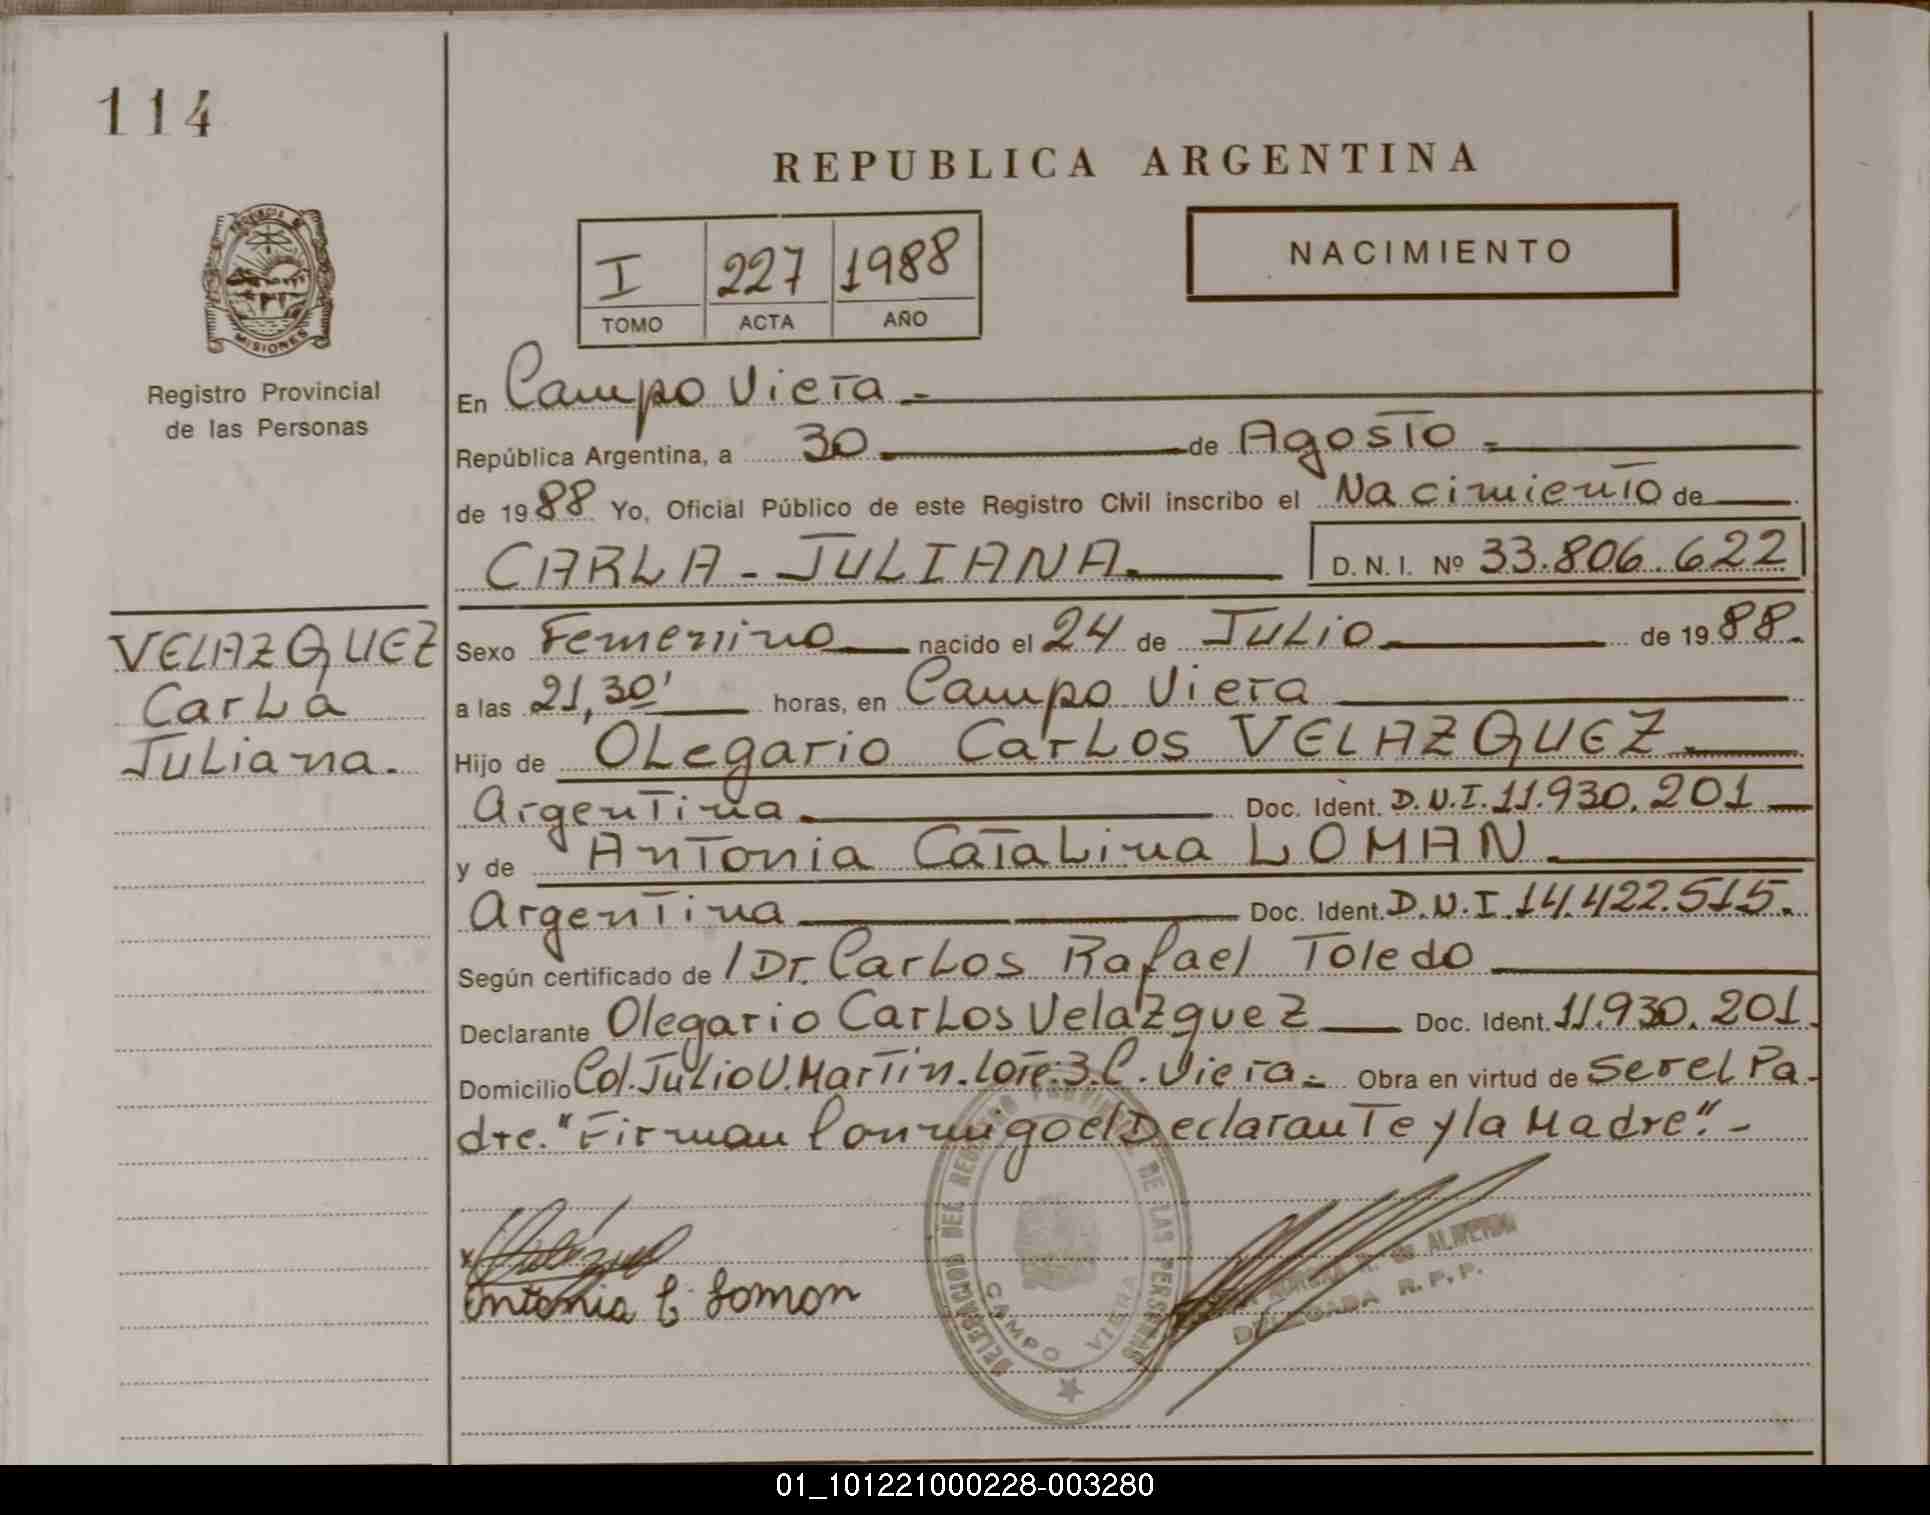 114
REPUBLICA ARGENTINA
NACIMIENTO
I 227 1988
TOMO ACTA AÑO
MISIONES
Registro Provincial
de las Personas
En Campo Viera.-
República Argentina, a 30 de Agosto.-
de 1988 Yo, Oficial Público de este Registro Civil inscribo el Nacimiento de
CARLA - JULIANA. D. N. I. Nº 33.806.622
VELAZQUEZ
Carla
Juliana.
Sexo Femenino nacido el 24 de Julio de 1988.
a las 21,30' horas, en Campo Viera
Hijo de Olegario Carlos VELAZQUEZ.
Argentina. Doc. Ident. D.N.I. 11.930.201
y de Antonia Catalina LOMAN.
Argentina Doc. Ident. D.N.I. 14.422.515.
Según certificado de / Dr. Carlos Rafael Toledo
Declarante Olegario Carlos Velazquez Doc. Ident. 11.930.201.
Domicilio Col. Julio U. Martin. Lote. 3. C. Viera.- Obra en virtud de Ser el Pa-
dre. "Firman Conmigo el Declarante y la Madre".-
Antonia C. Loman
DELEGACION DEL REGISTRO PROVINCIAL DE LAS PERSONAS
CAMPO VIERA
DE ALMEIDA
DELEGADA R. P. P.
01_101221000228-003280